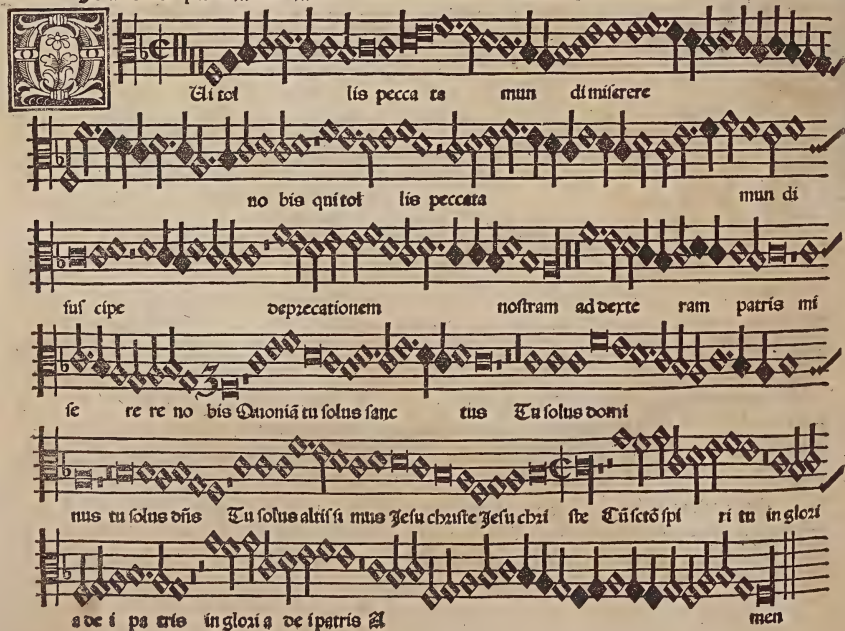 QUi tol lis pecca ta mun di miserere
no bis qui tol lis peccata mun di
sus cipe deprecationem nostram ad dexte ram patris mi
se re re no bis Quoniā tu solus sanc tus Tu solus domi
nus tu solus dn̄s Tu solus altis si mus Jesu christe Jesu chri ste Cū sctō spi ri tu in glori
a de i pa tris in glori a de i patris A men